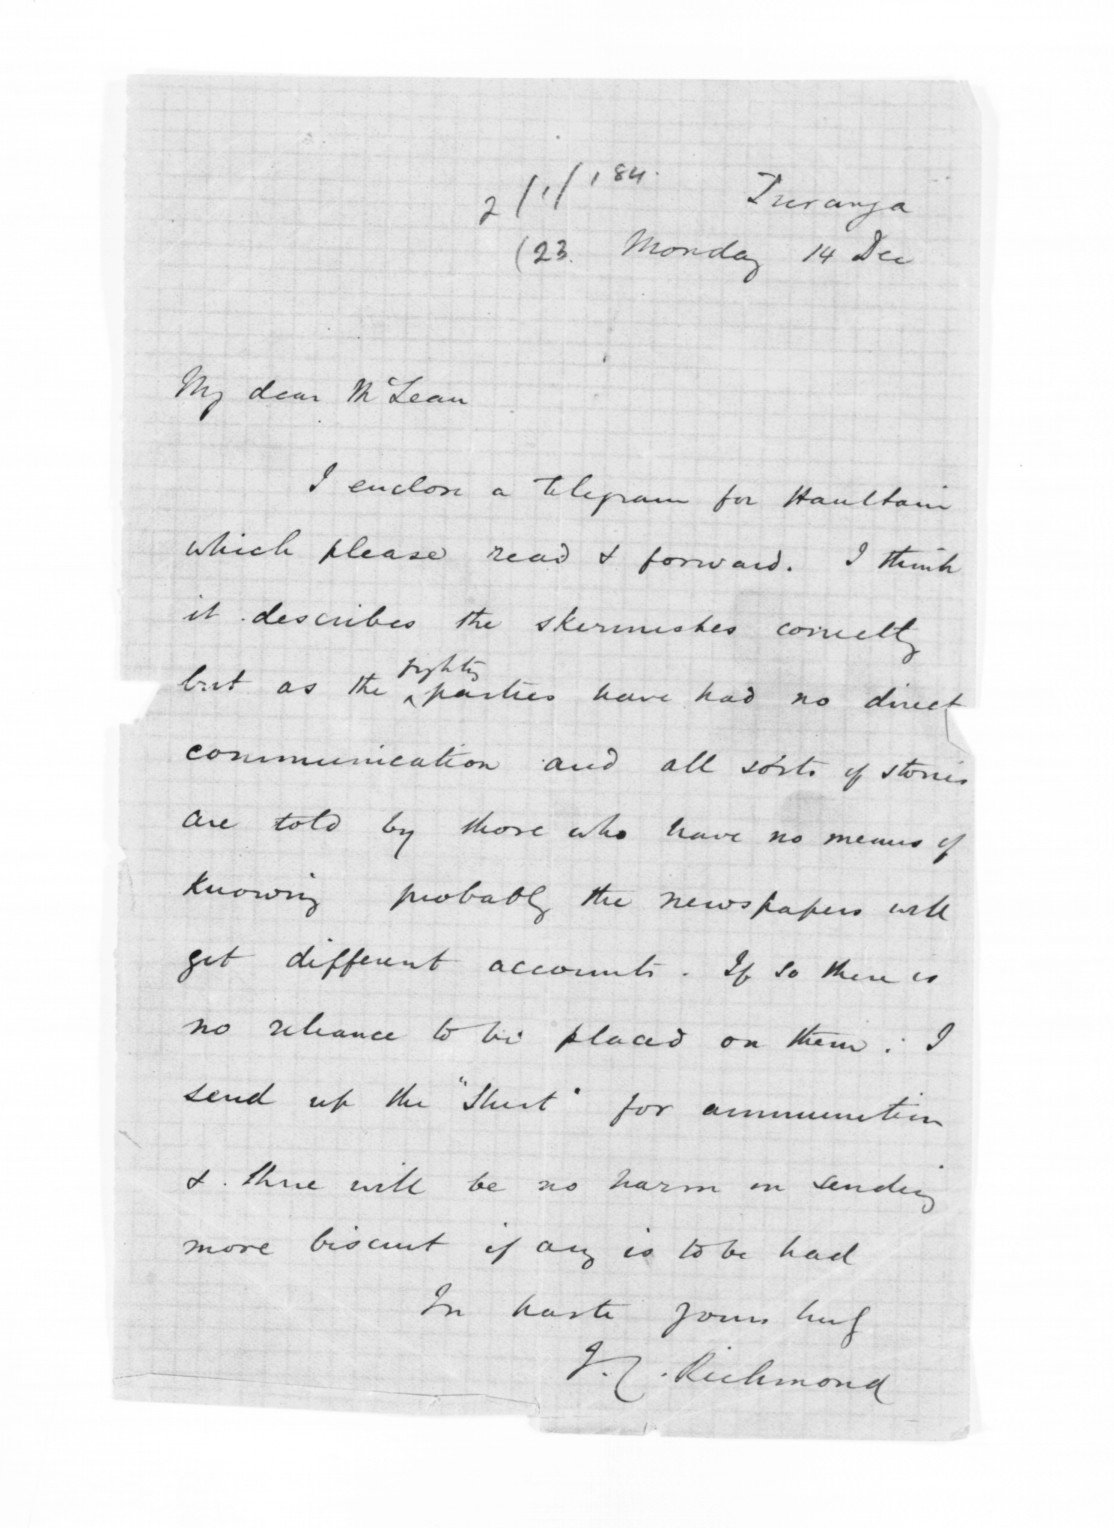 2/1/184.
Turanga
(23. Monday 14 Dec
My dear McLean
I enclose a telegram for Haultain
which please read & forward. I think
it describes the skirmishes correctly
but as the fighting parties have had no direct
communication and all sorts of stories
are told by those who have no means of
knowing probably the newspapers will
get different accounts. If so there is
no reliance to be placed on them. I
send up the "Sturt" for ammunition
& there will be no harm in sending
more biscuit if any is to be had
In haste yours truly
J.C. Richmond